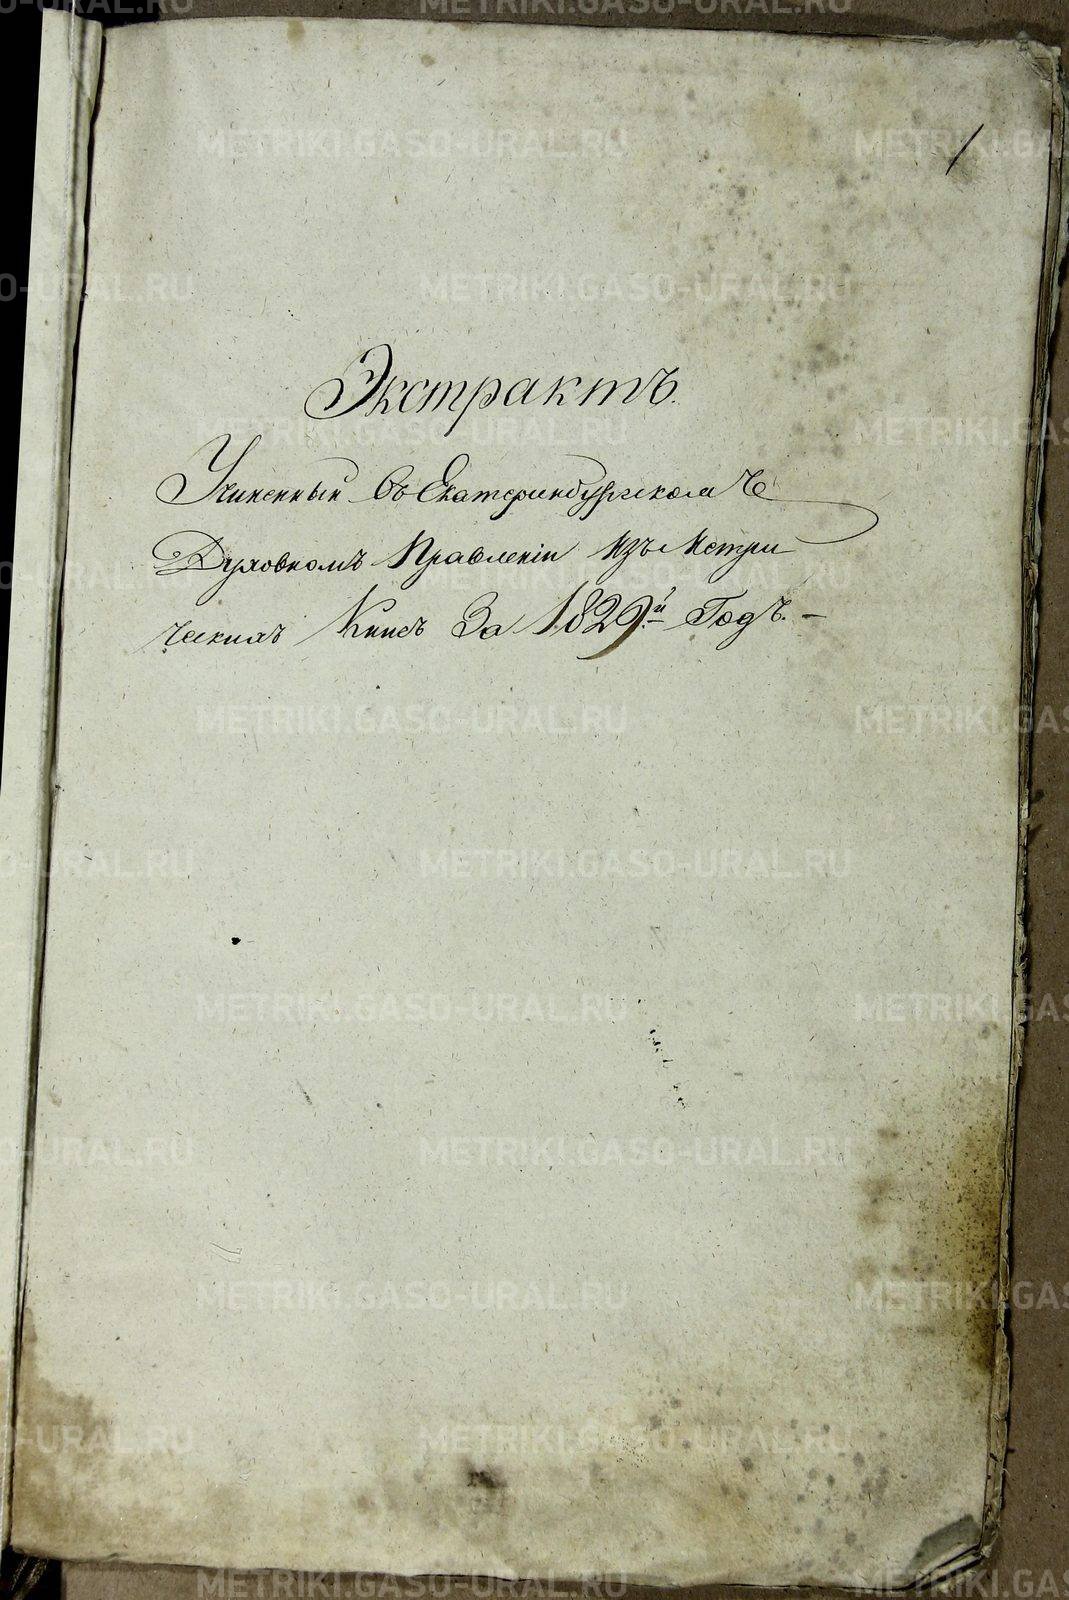 1
Экстрактъ.
Учиненный въ Екатеринбургскомъ
Духовномъ Правленіи изъ Метри
ческихъ Книгъ За 1829й Годъ.-
METRIKI.GASO-URAL.RU